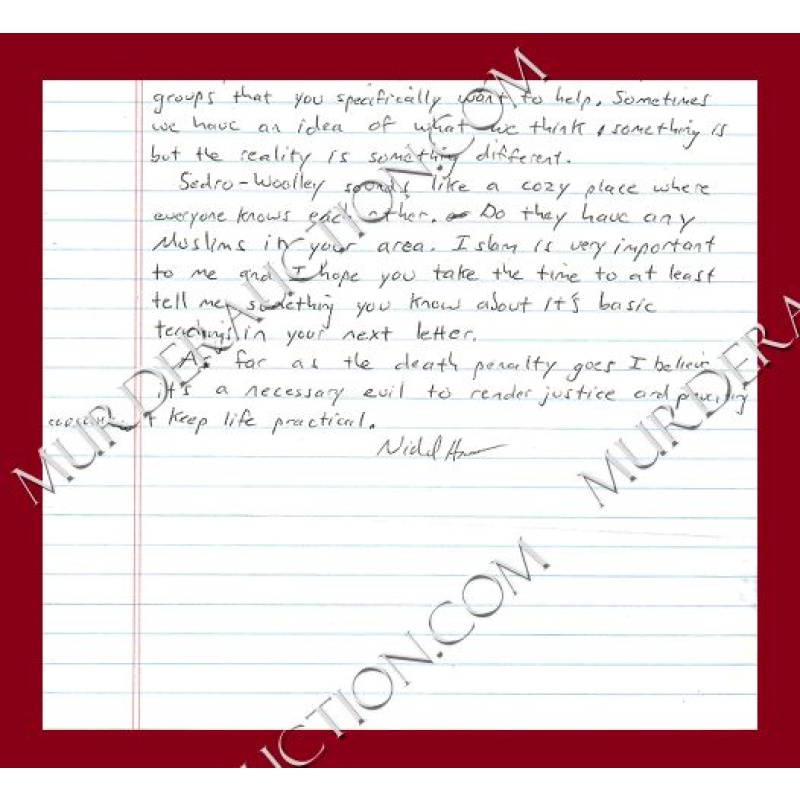 groups that you specifically want to help. Sometimes
we have an idea of what we think something is
but the reality is something different.
Sedro-Woolley sounds like a cozy place where
everyone knows each other. Do they have any
Muslims in your area. Islam is very important
to me and I hope you take the time to at least
tell me something you know about it's basic
teachings in your next letter.
As far as the death penalty goes I believe
it's a necessary evil to render justice and
& keep life practical.
Nidal
MURDERAUCTION.COM
MURDERA
UCTION.COM